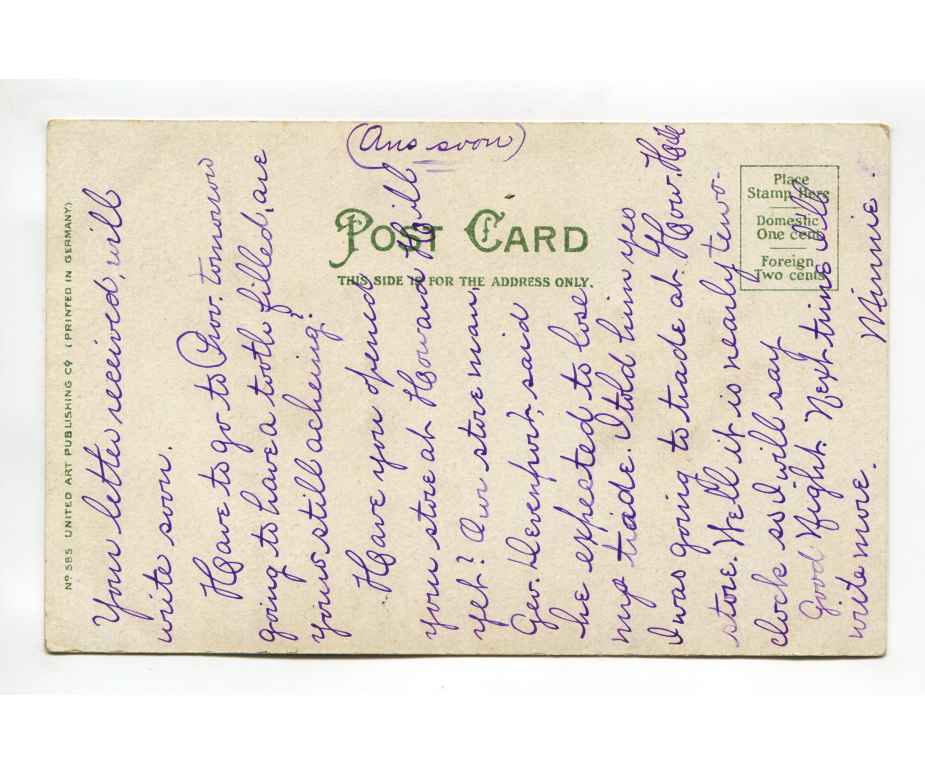 (Ans soon)
POST CARD
THIS SIDE IS FOR THE ADDRESS ONLY.
Place
Stamp Here
Domestic
One cent
Foreign
Two cents
No 585 UNITED ART PUBLISHING CO (PRINTED IN GERMANY)
Your letter received, will
write soon.
Have to go to Prov. tomorrow
going to have a tooth filled, are
yours still acheing?
Have you opened
your store at Howard Hill
yet? Our store man,
Geo. Devenport, said
he expected to lose
my traide. I told him yes
I was going to trade at How. Hill
store. Well it is nearly two-
clock so I will say
Good Night. Next time will
write more. Minnie.